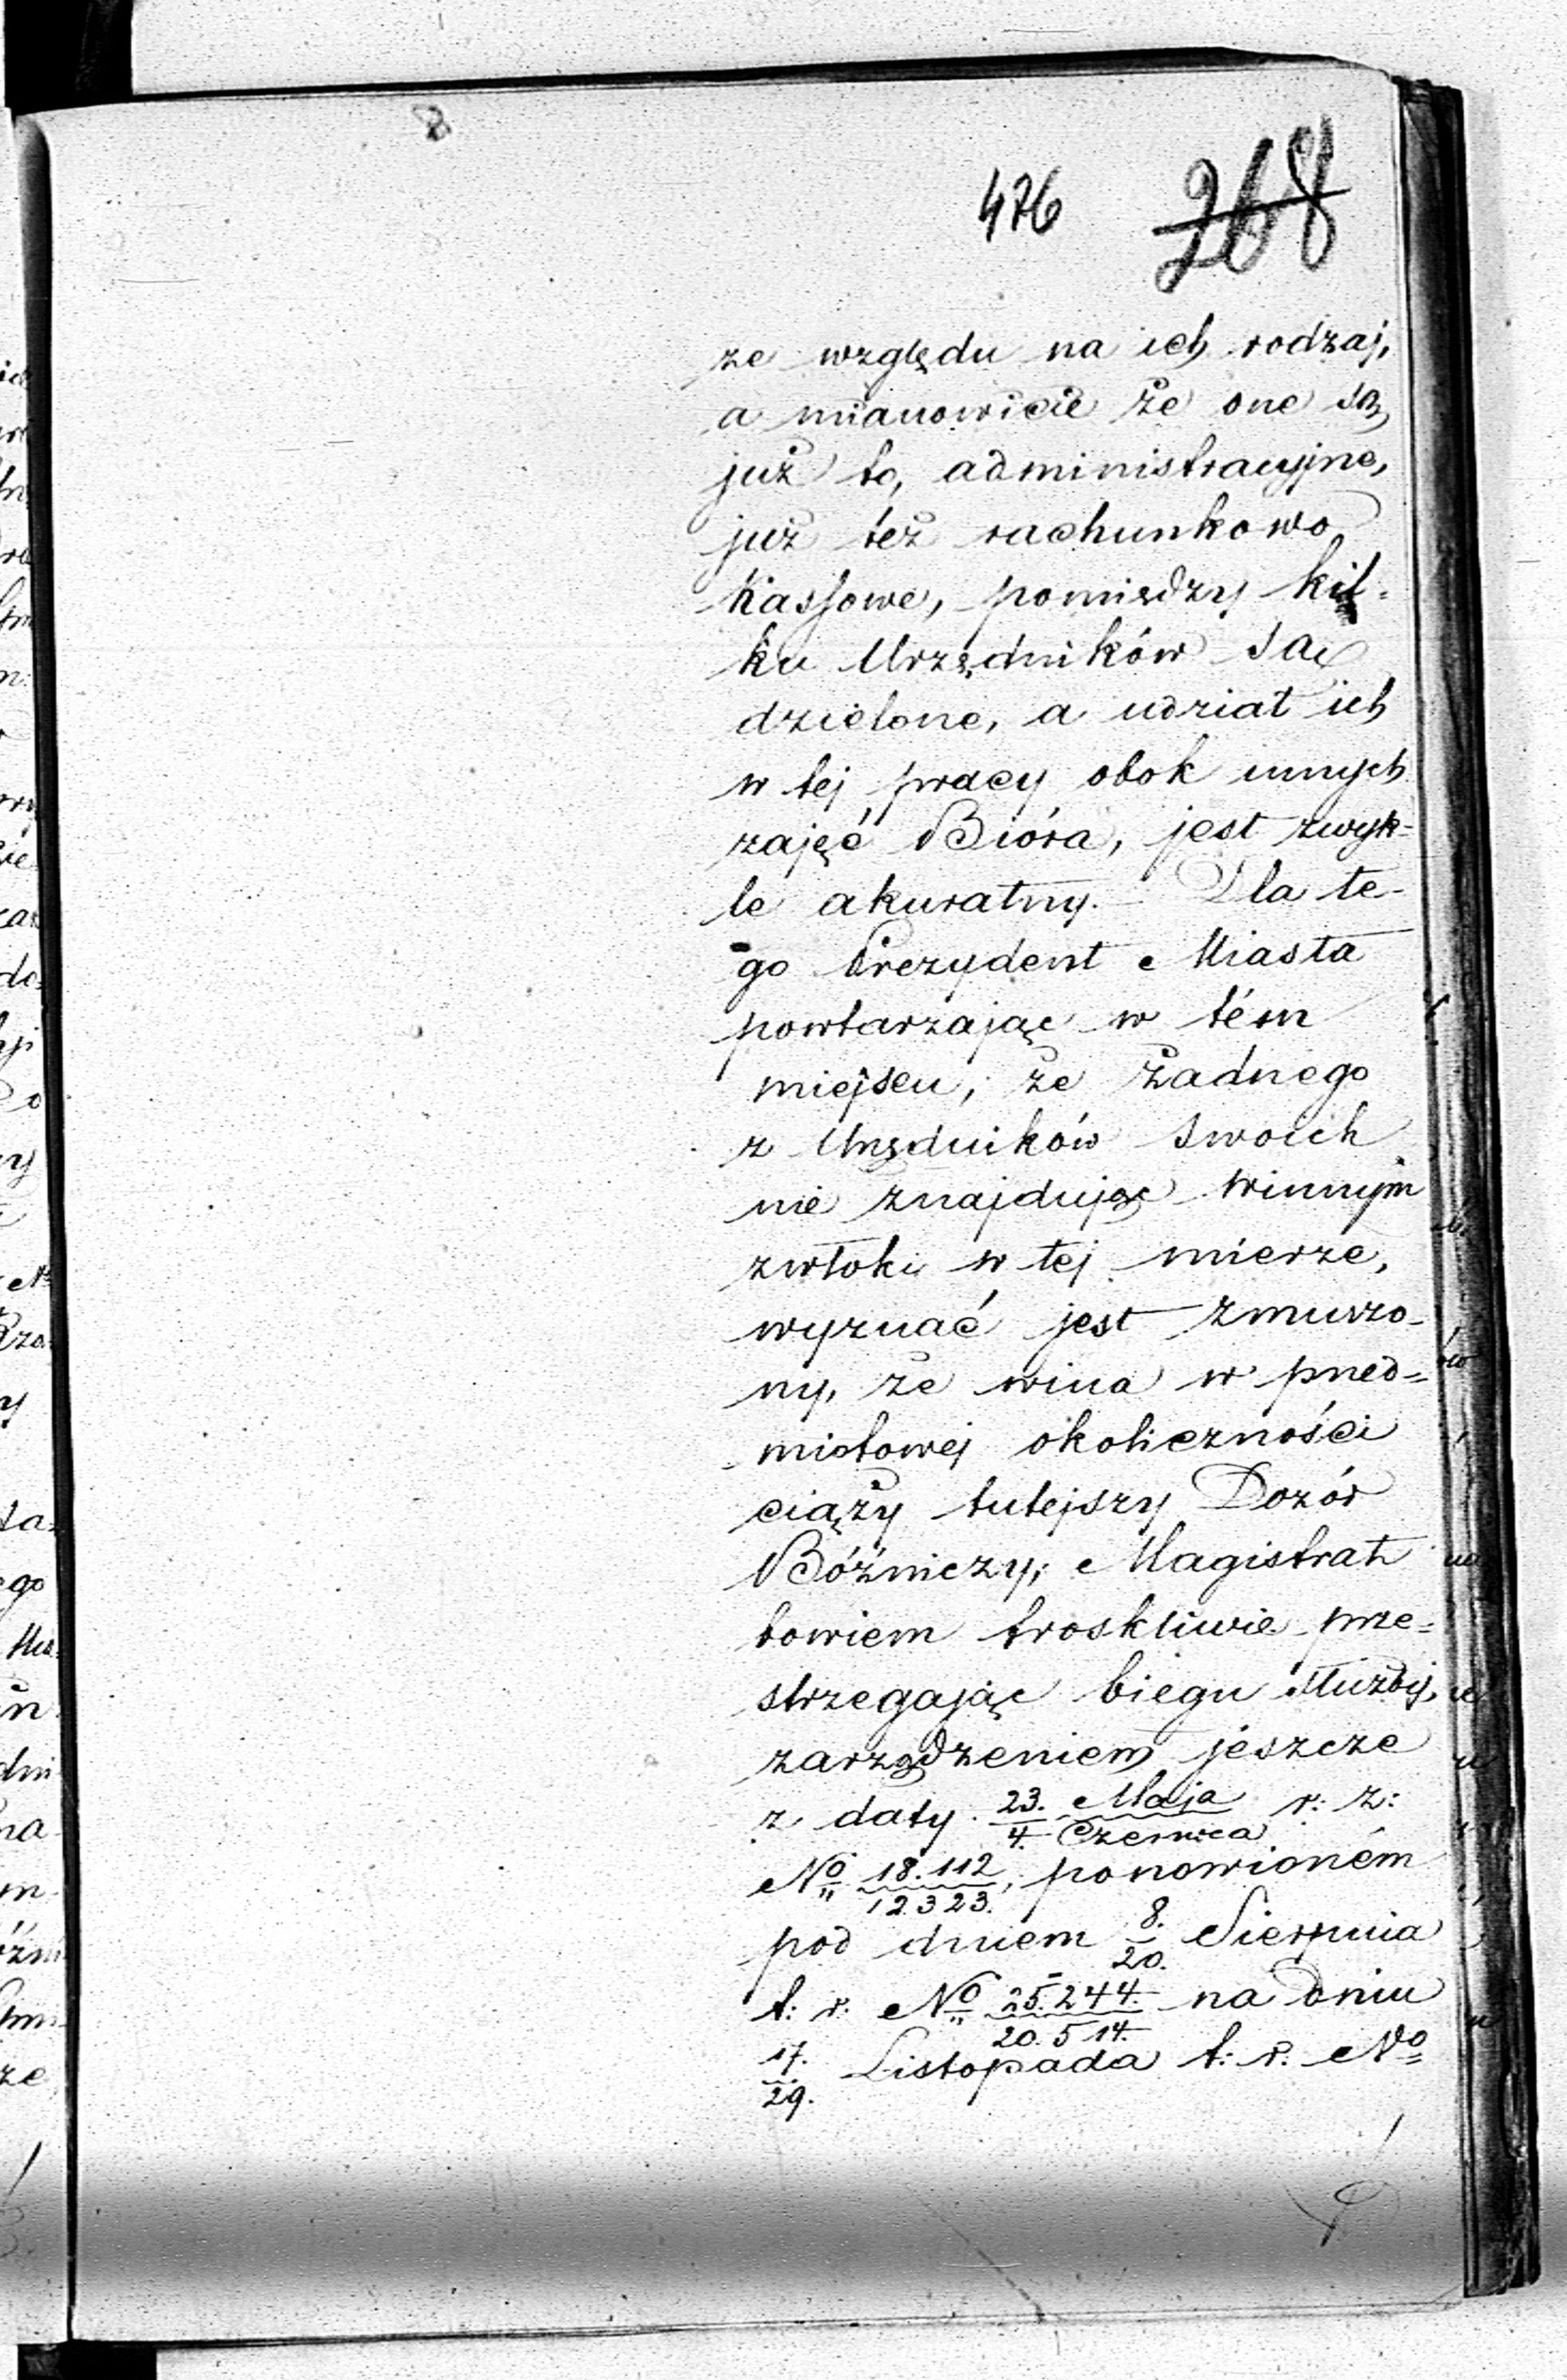 476 268
ze względu na ich rodzaj,
a mianowicie że one są
już to, administracyjne,
już też rachunkowo
Kassowe, pomiędzy kil-
ku Urzędników są
dzielone, a udział ich
w tej pracy obok innych
zajęć Bióra, jest zwyk=
le akuratny. – Dla te-
go Prezydent Miasta
powtarzając w tém
miejscu, że żadnego
z Urzędników swoich
nie znajdując winnym
zwłoki w tej mierze,
wyznać jest zmuszo-
ny, że wina w przed=
miotowej okoliczności
ciąży tutejszy Dozór
Bóżniczy; Magistrat
bowiem troskliwie prze=
strzegając biegu służby,
zarządzeniem jeszcze
z daty 23. Maja / 4. Czerwca r: z:
No 18.112 / 12323. ponowioném
pod dniem 8. / 20. Sierpnia
t: r: No 25.244. / 20.514. na dniu
17. / 29. Listopada t: r: No